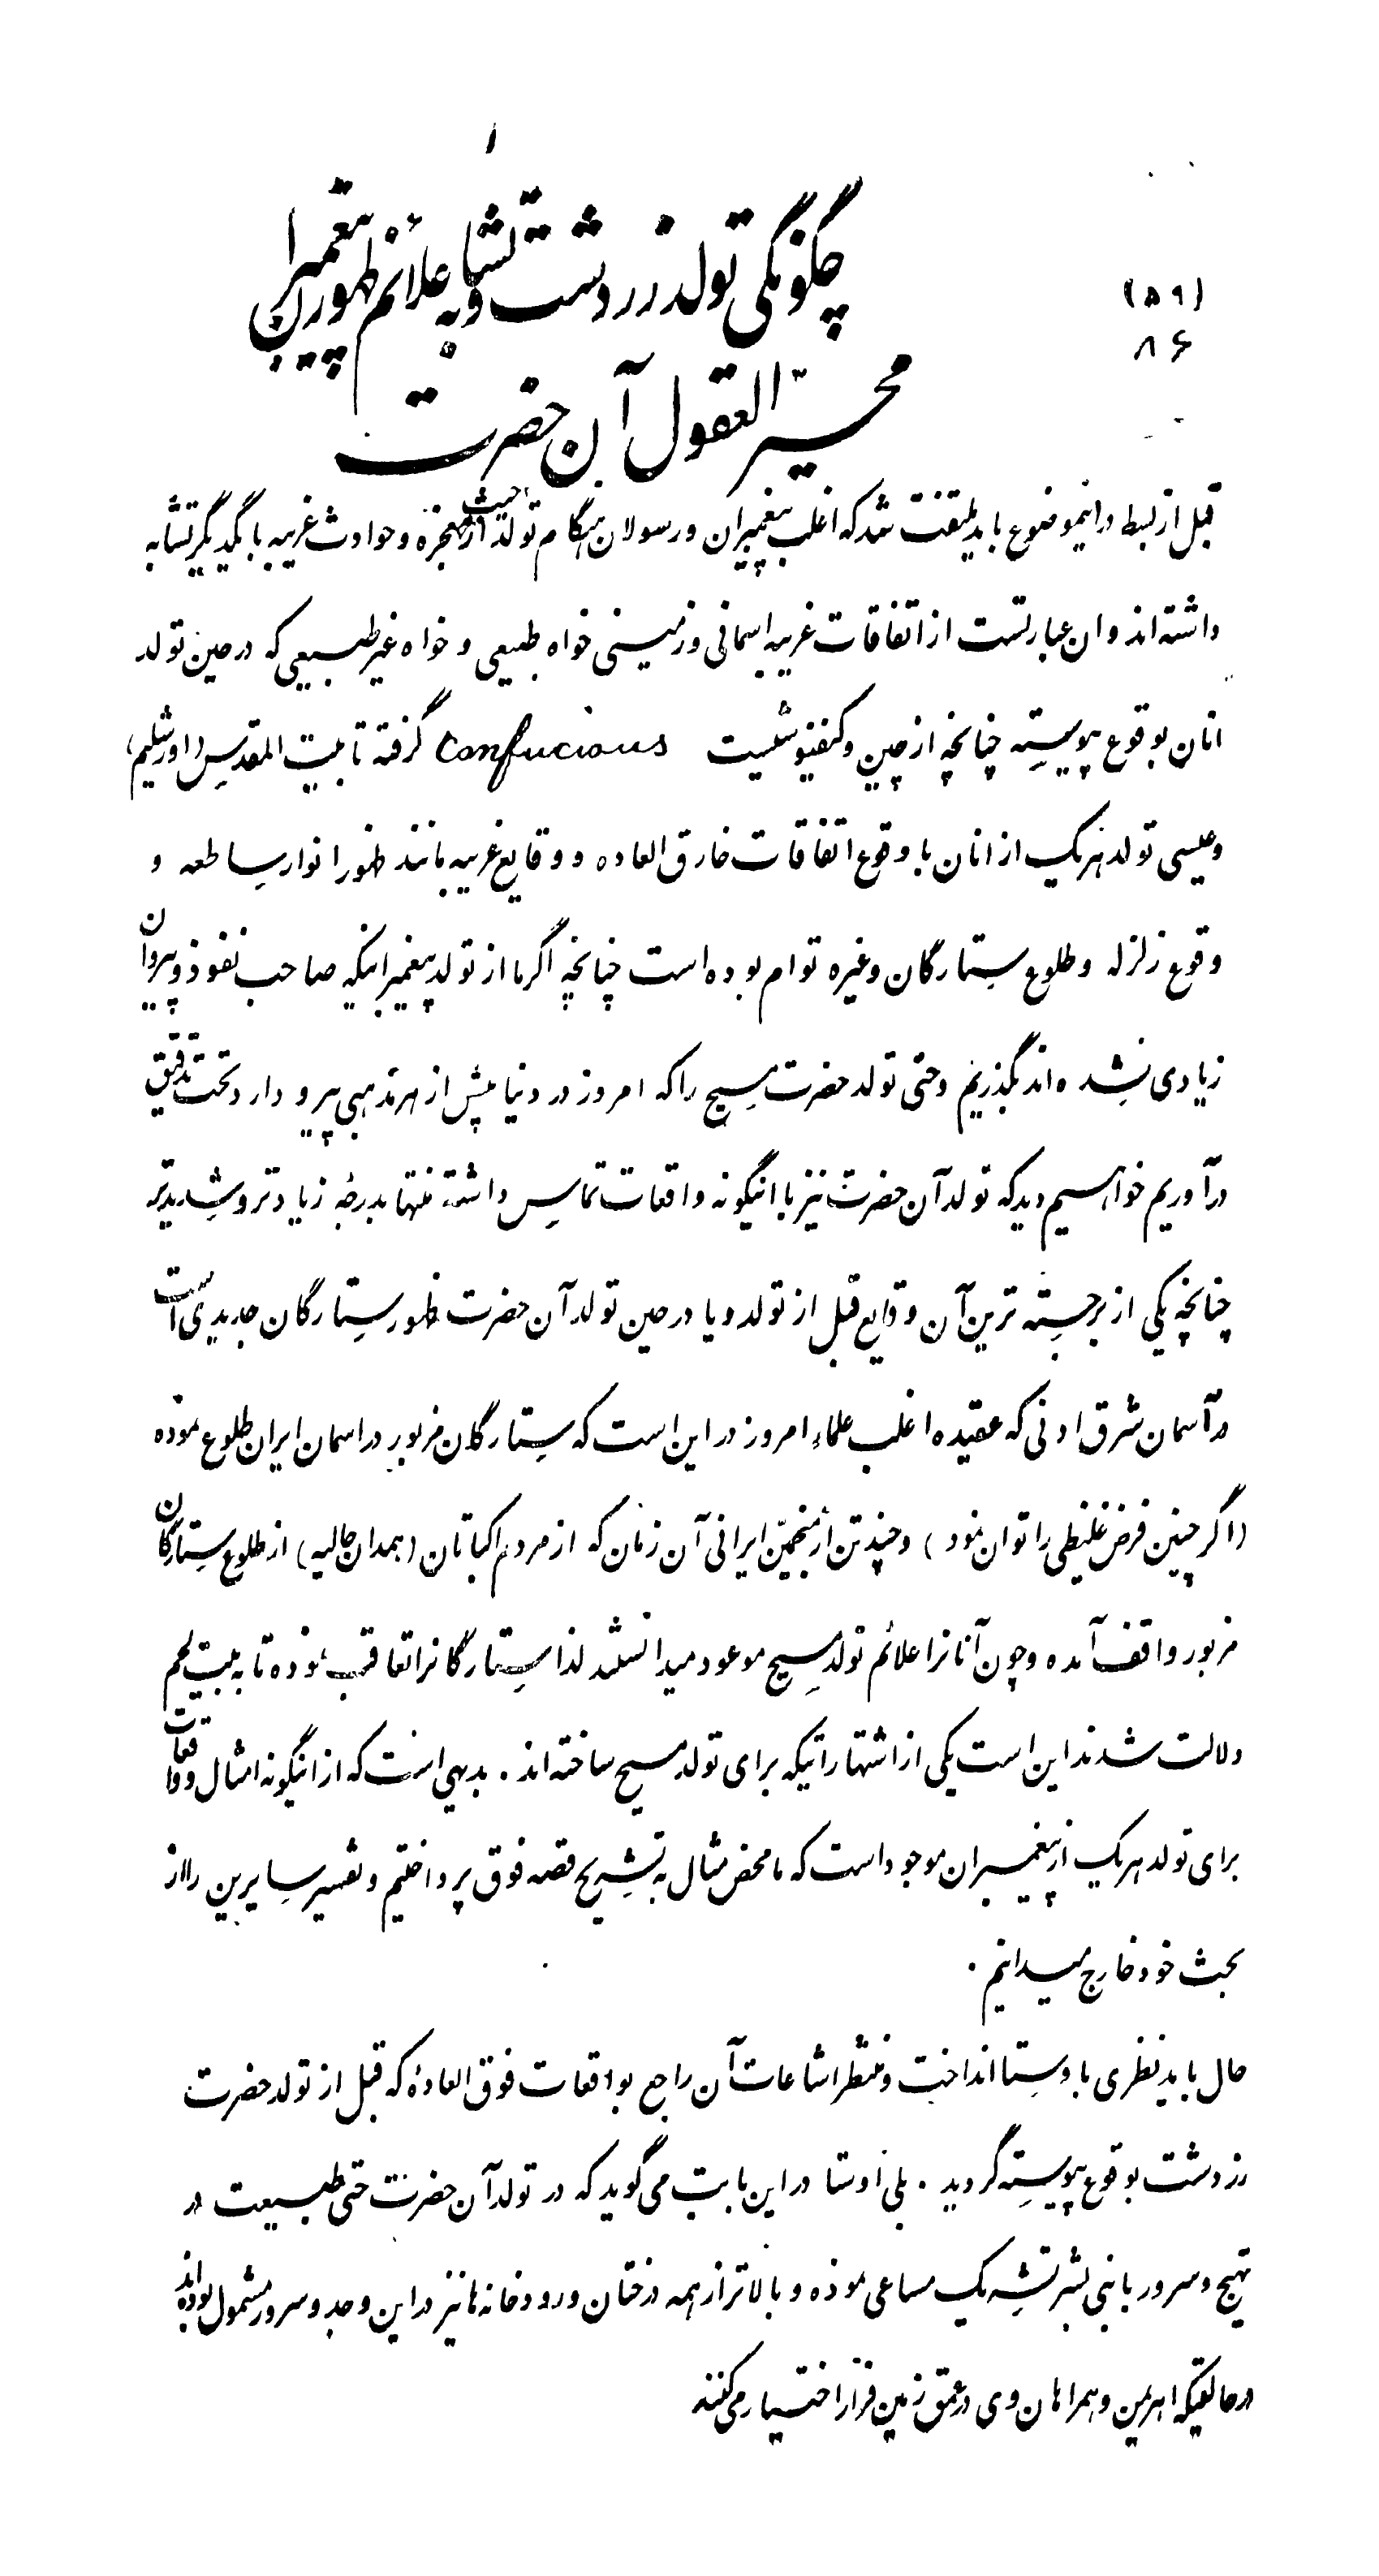 (۵۹)
۸۶
چگونگی تولد زردشت و تشابه علائم ظهور پیغمبران
محیر العقول آن حضرت
قبل از بسط در اینموضوع باید ملتفت شد که اغلب پیغمبران و رسولان هنگام تولد از حیث معجزه و حوادث غریبه با یکدیگر تشابه
داشته اند و ان عبارتست از اتفاقات غریبه اسمانی و زمینی خواه طبیعی و خواه غیر طبیعی که در حین تولد
انان بوقوع پیوسته چنانچه از چین و کنفیوشسیت Confucious گرفته تا بیت المقدس (اورشلیم)
و عیسی تولد هریک از انان با وقوع اتفاقات خارق العاده و وقایع غریبه مانند ظهور انوار ساطعه و
وقوع زلزله و طلوع ستارگان و غیره توام بوده است چنانچه اگر ما از تولد پیغمبرانیکه صاحب نفوذ و پیروان
زیادی نشده اند بگذریم و حتی تولد حضرت مسیح را که امروز در دنیا بیش از هر مذهبی پیرو دارد تحت تدقیق
درآوریم خواهیم دید که تولد آن حضرت نیز با اینگونه واقعات تماس داشته منتها بدرجه زیادتر و شدیدتر
چنانچه یکی از برجسته ترین آن وقایع قبل از تولد و یا در حین تولد آن حضرت ظهور ستارگان جدیدی است
در آسمان شرق ادنی که عقیده اغلب علماء امروز در این است که ستارگان مزبور در اسمان ایران طلوع نموده
(اگر چنین فرض غلیظی را توان نمود) و چند تن از منجمین ایرانی آن زمان که از مردم اکباتان (همدان حالیه) از طلوع ستارگان
مزبور واقف آمده و چون آنانرا علائم تولد مسیح موعود میدانستند لذا ستارگانرا تعاقب نموده تا به بیت لحم
دلالت شدند این است یکی از اشتهاراتیکه برای تولد مسیح ساخته اند . بدیهی است که از اینگونه امثال و واقعات
برای تولد هریک از پیغمبران موجود است که ما محض مثال به تشریح قصه فوق پرداختیم و تفسیر سایرین را از
بحث خود خارج میدانیم .
حال باید نظری باوستا انداخت و منتظر اشاعات آن راجع بواقعات فوق العادهٔ که قبل از تولد حضرت
زردشت بوقوع پیوسته گردید . بلی اوستا در این بابت می گوید که در تولد آن حضرت حتی طبیعت در
تهیج و سرور با بنی بشر تشریک مساعی نموده و بالاتر از همه درختان و رودخانه ها نیز در این وجد و سرور مشمول بوده اند
در حالیکه اهریمن و همراهان وی در عمق زمین فرار اختیار می کنند